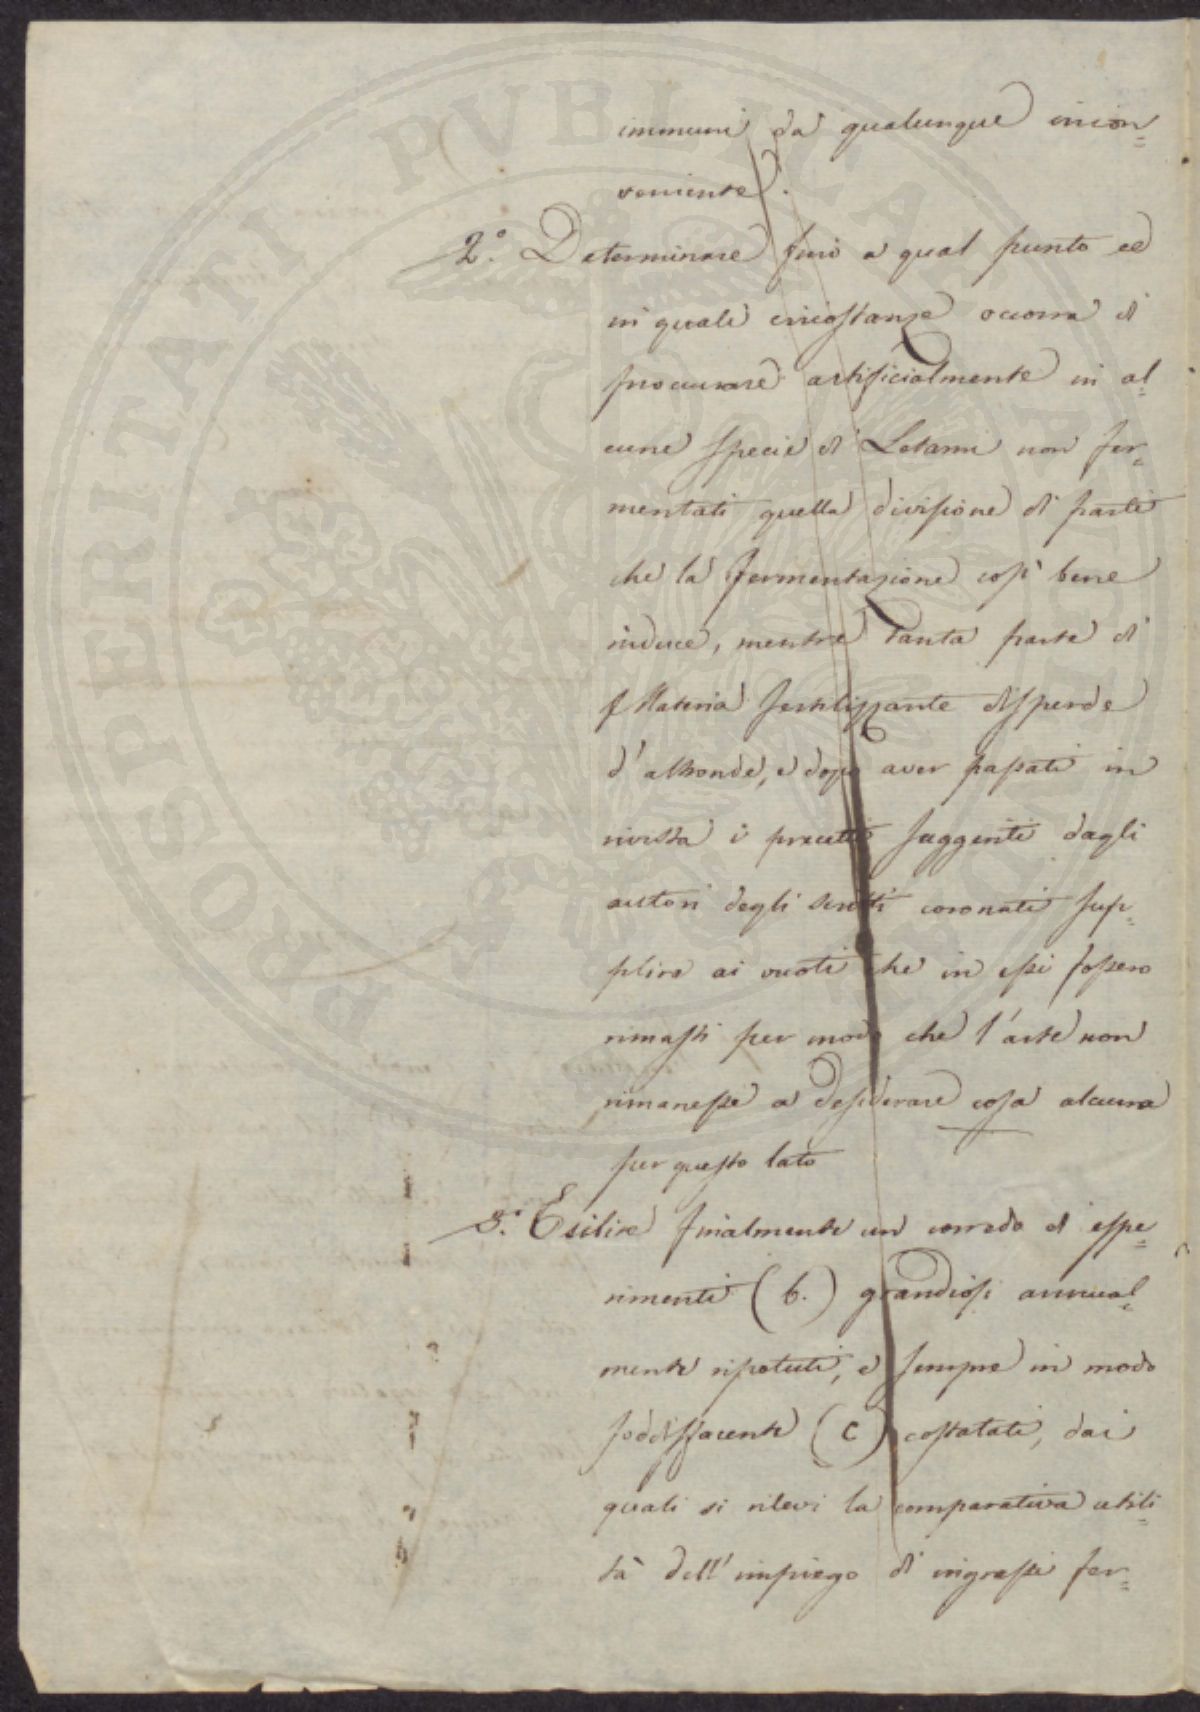 immuni da qualunque incon=
veniente.
2.º Determinare fino a qual punto ed
in quali circostanze occorra di
procurare artificialmente in al=
cune specie di Letami non fer=
mentati quella divisione di parti
che la fermentazione così bene
induce, mentre tanta parte di
Materia fertilizzante disperde
d'altronde, e dopo aver passati in
rivista i precetti suggeriti dagli
autori degli scritti coronati sup=
plire ai vuoti che in essi fossero
rimasti per modo che l'arte non
rimanesse a desiderare cosa alcuna
per questo lato
3.º Esibire finalmente un corredo di espe=
rimenti (b.) grandiosi annual=
mente ripetuti, e sempre in modo
soddisfacente (c) costatati, dai
quali si rilevi la comparativa utili=
tà dell'impiego di ingrassi fer=
PROSPERITATI PVBLICAE